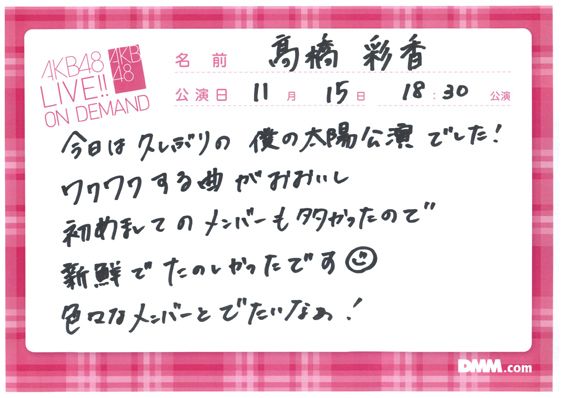 AKB48
LIVE!!
ON DEMAND
AKB
48
名前 髙橋 彩香
公演日 11月 15日 18:30 公演
今日は久しぶりの 僕の太陽公演 でした!
ワクワクする曲がおおいし
初めましてのメンバーも多かったので
新鮮でたのしかったです
色々なメンバーとでたいなぁ!
DMM.com